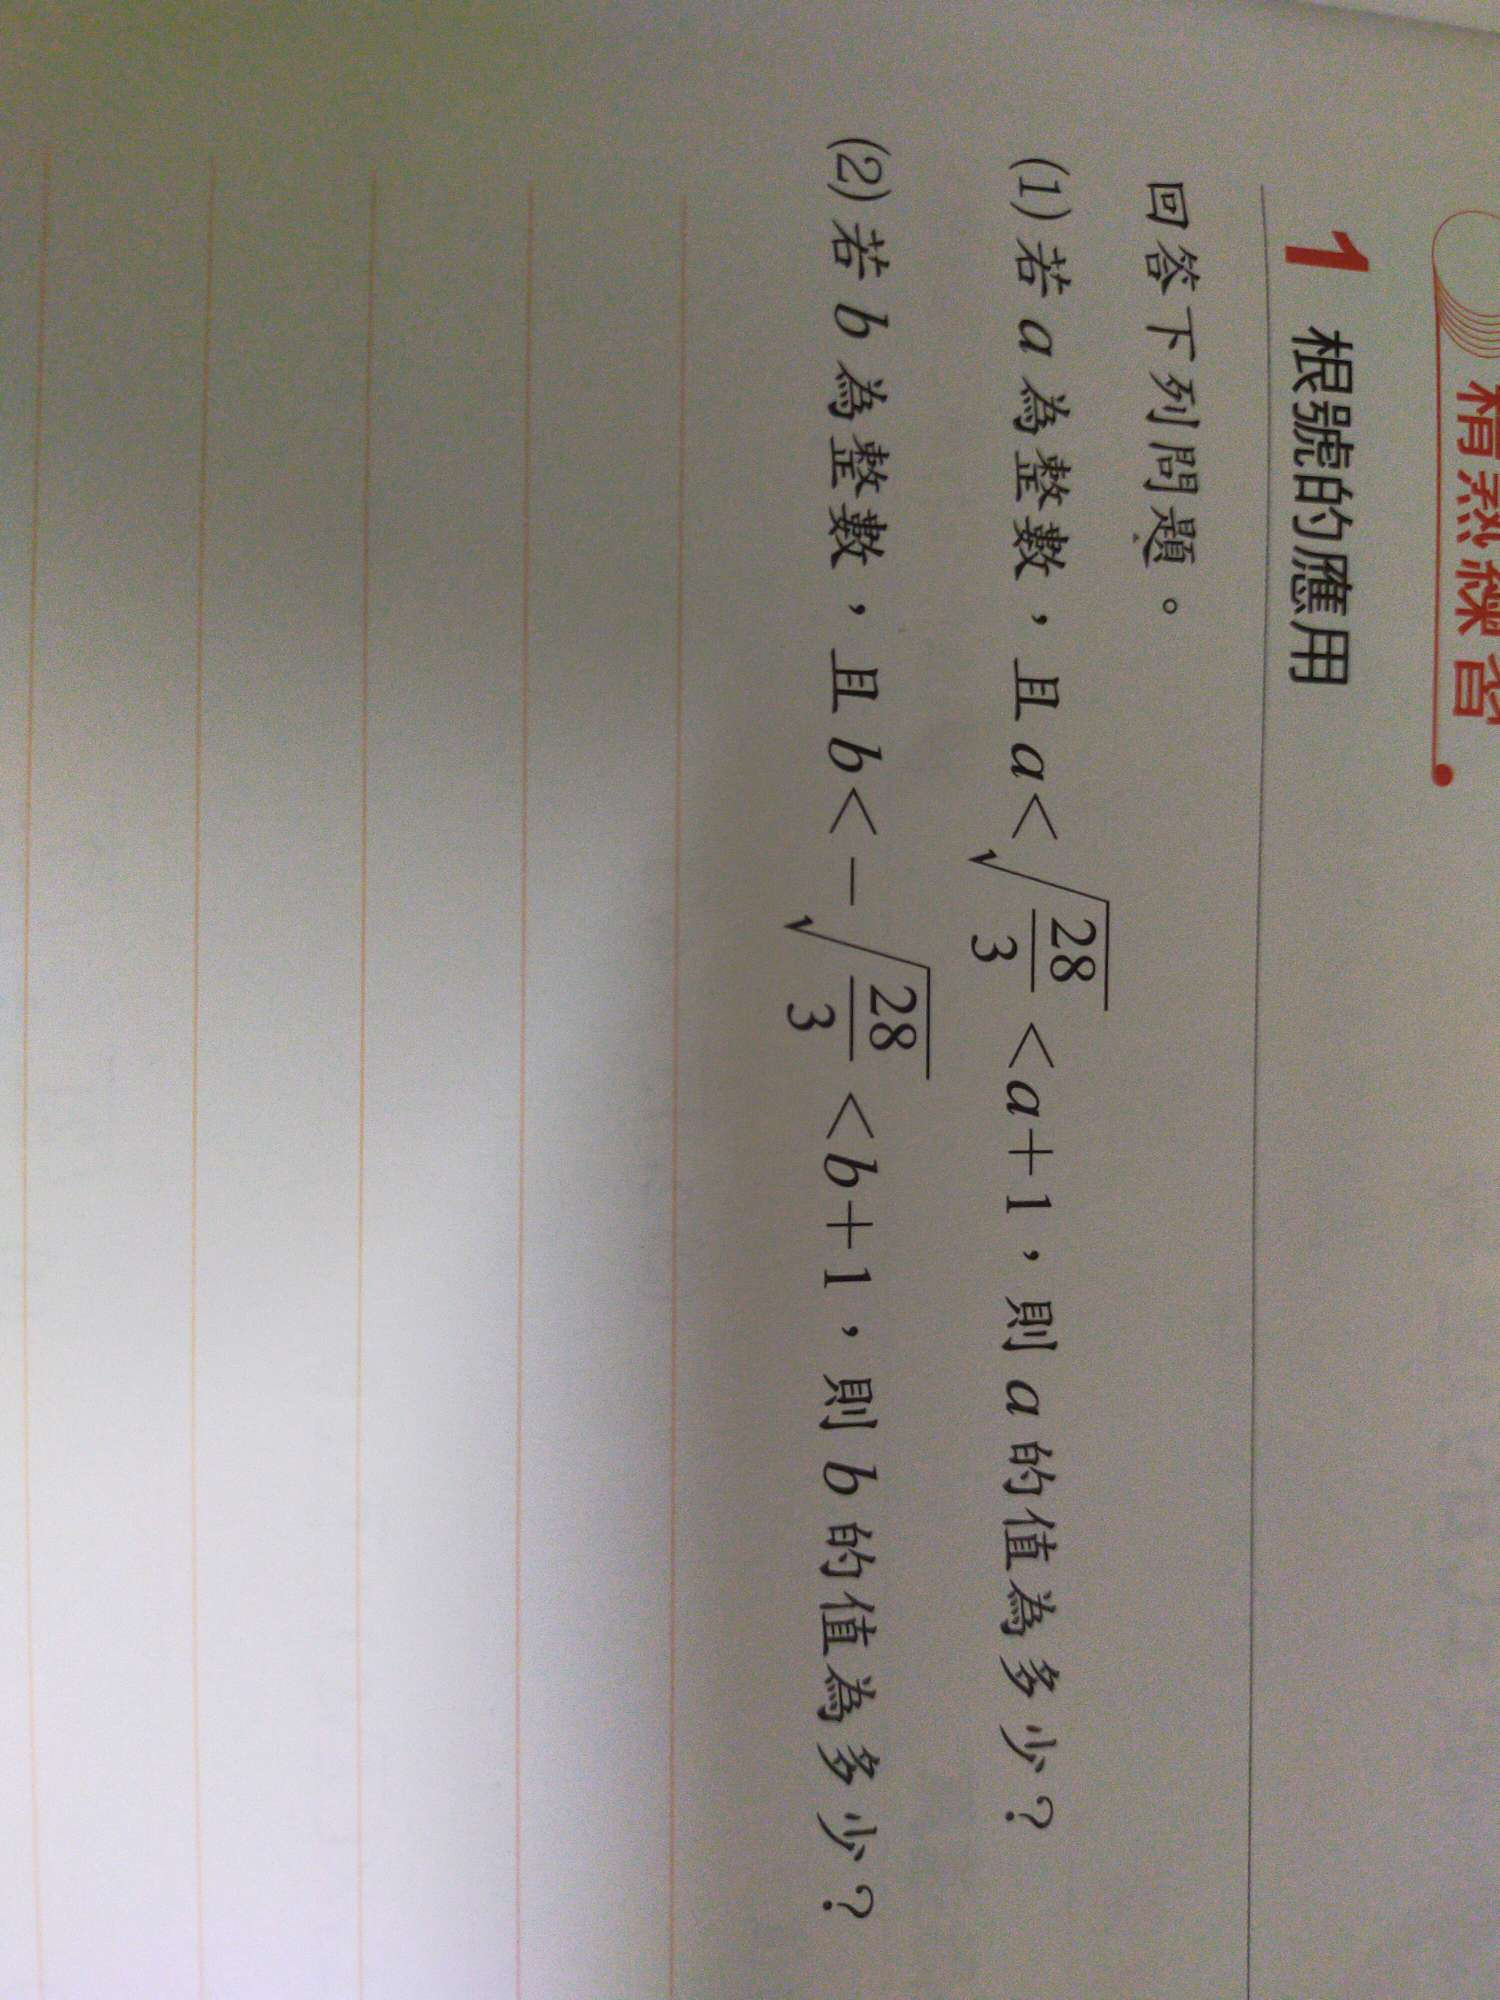 精熟練習
1 根號的應用
回答下列問題。
(1)若 a 為整數，且 a<√(28/3)<a+1，則 a 的值為多少？
(2)若 b 為整數，且 b<-√(28/3)<b+1，則 b 的值為多少？